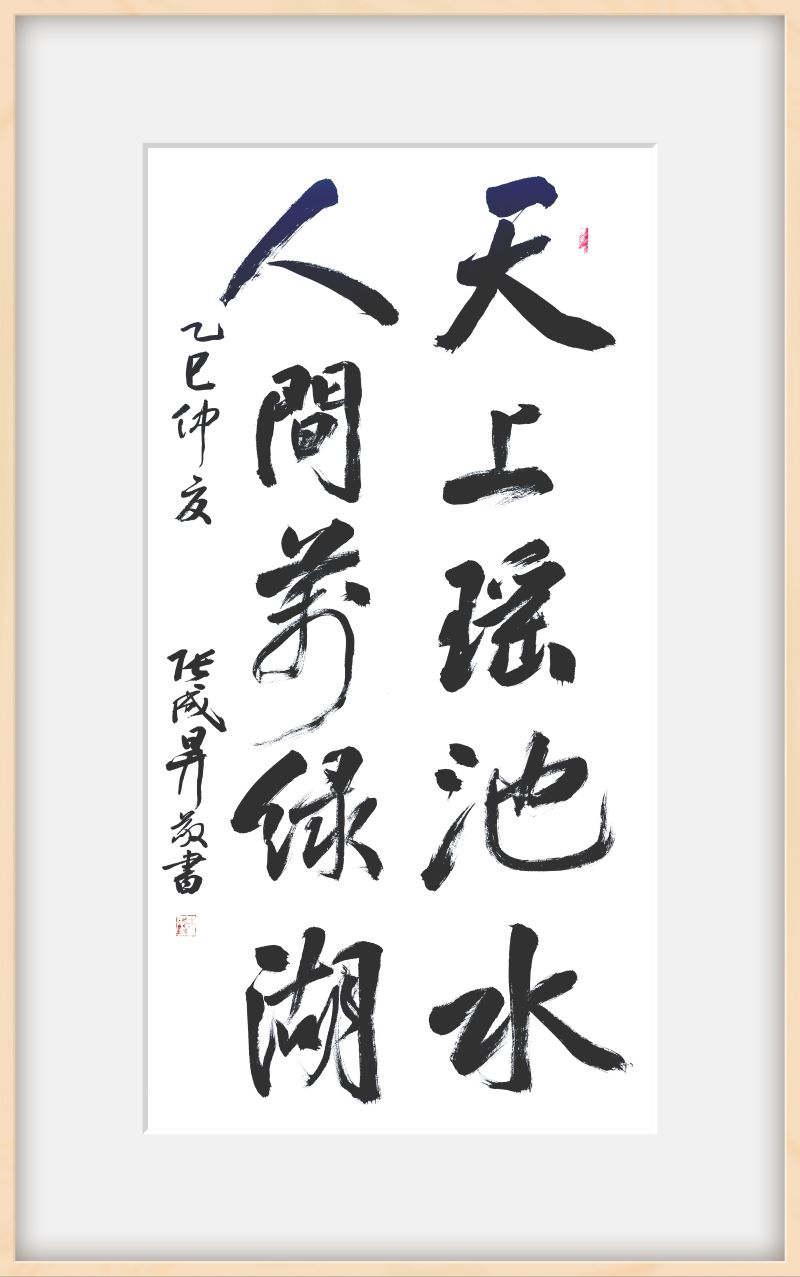 天上瑶池水
人間萬绿湖
乙巳仲夏 张成昇敬書